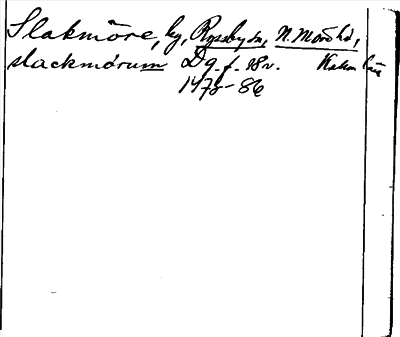 Slakmöre, by, Ryssby sn, N. Möre hd,
slackmörum Dg. f. 18v. Kalm. län
1478-86